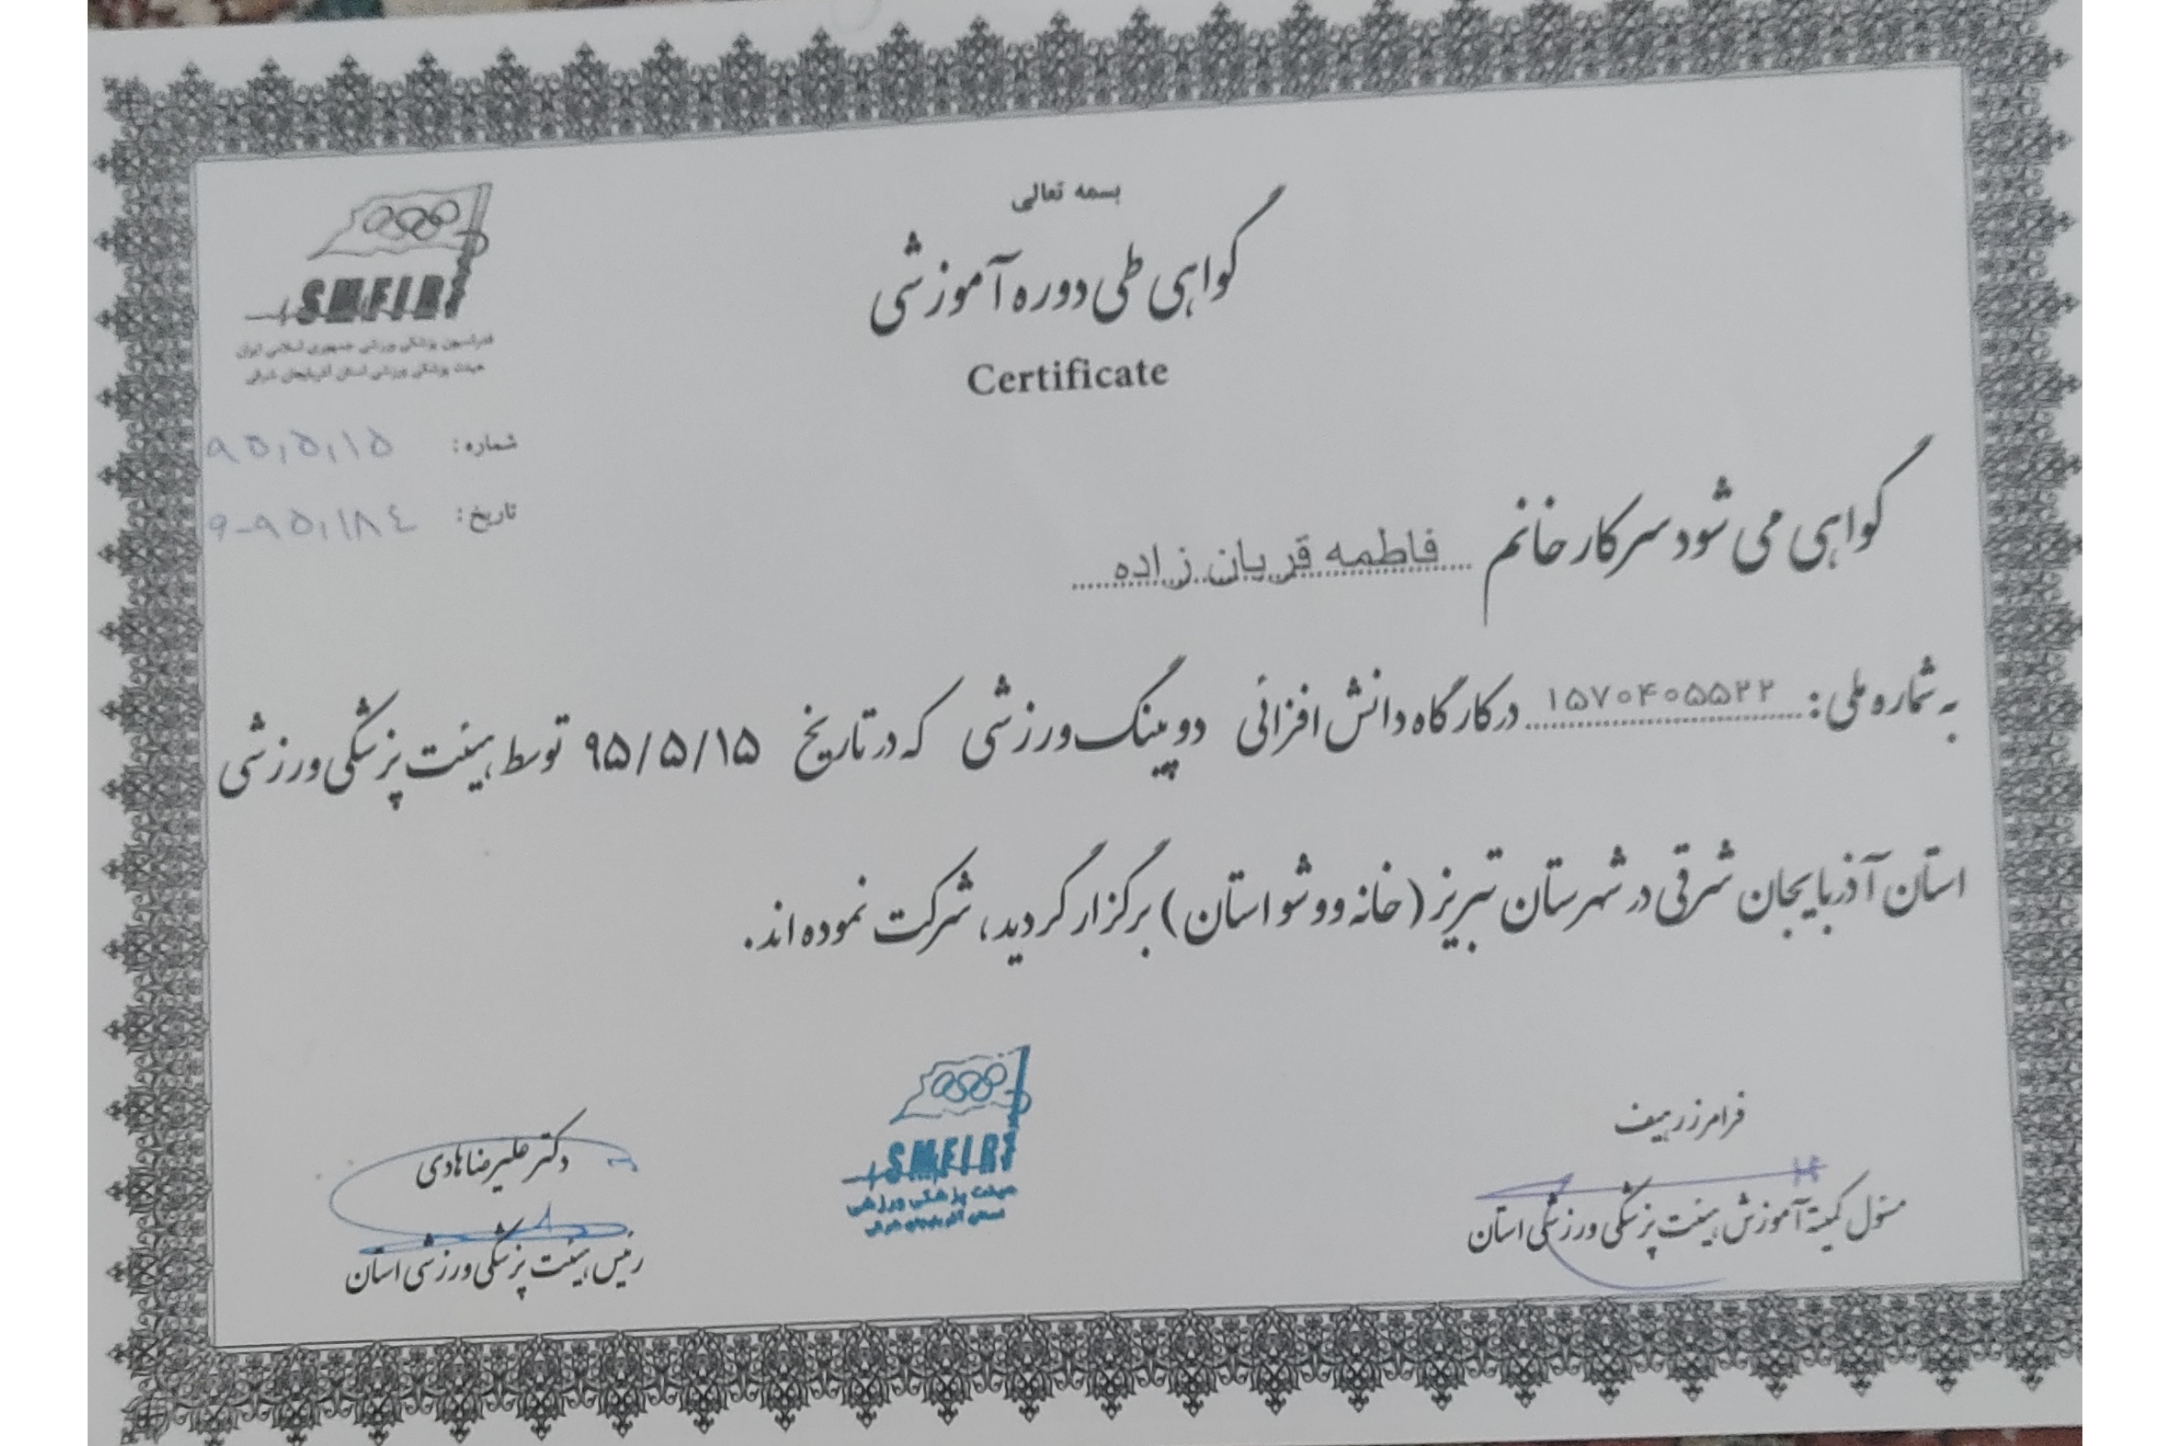 بسمه تعالی
گواهی طی دوره آموزشی
Certificate
SMFIRI
فدراسیون پزشکی ورزشی جمهوری اسلامی ایران
هیئت پزشکی ورزشی استان آذربایجان شرقی
شماره: ۹۵,۵,۱۵
تاریخ: ۹-۹۵,۱۸٤
گواهی می شود سرکار خانم فاطمه قربان زاده
به شماره ملی: ۱۵۷۰۴۰۵۵۲۲ در کارگاه دانش افزائی دوپینگ ورزشی که در تاریخ ۹۵/۵/۱۵ توسط هیئت پزشکی ورزشی
استان آذربایجان شرقی در شهرستان تبریز (خانه ووشو استان) برگزار گردید، شرکت نموده اند.
فرامرز رهیف
مسئول کمیته آموزش هیئت پزشکی ورزشی استان
SMFIRI
هیئت پزشکی ورزشی
استان آذربایجان شرقی
دکتر علیرضا هادی
رئیس هیئت پزشکی ورزشی استان